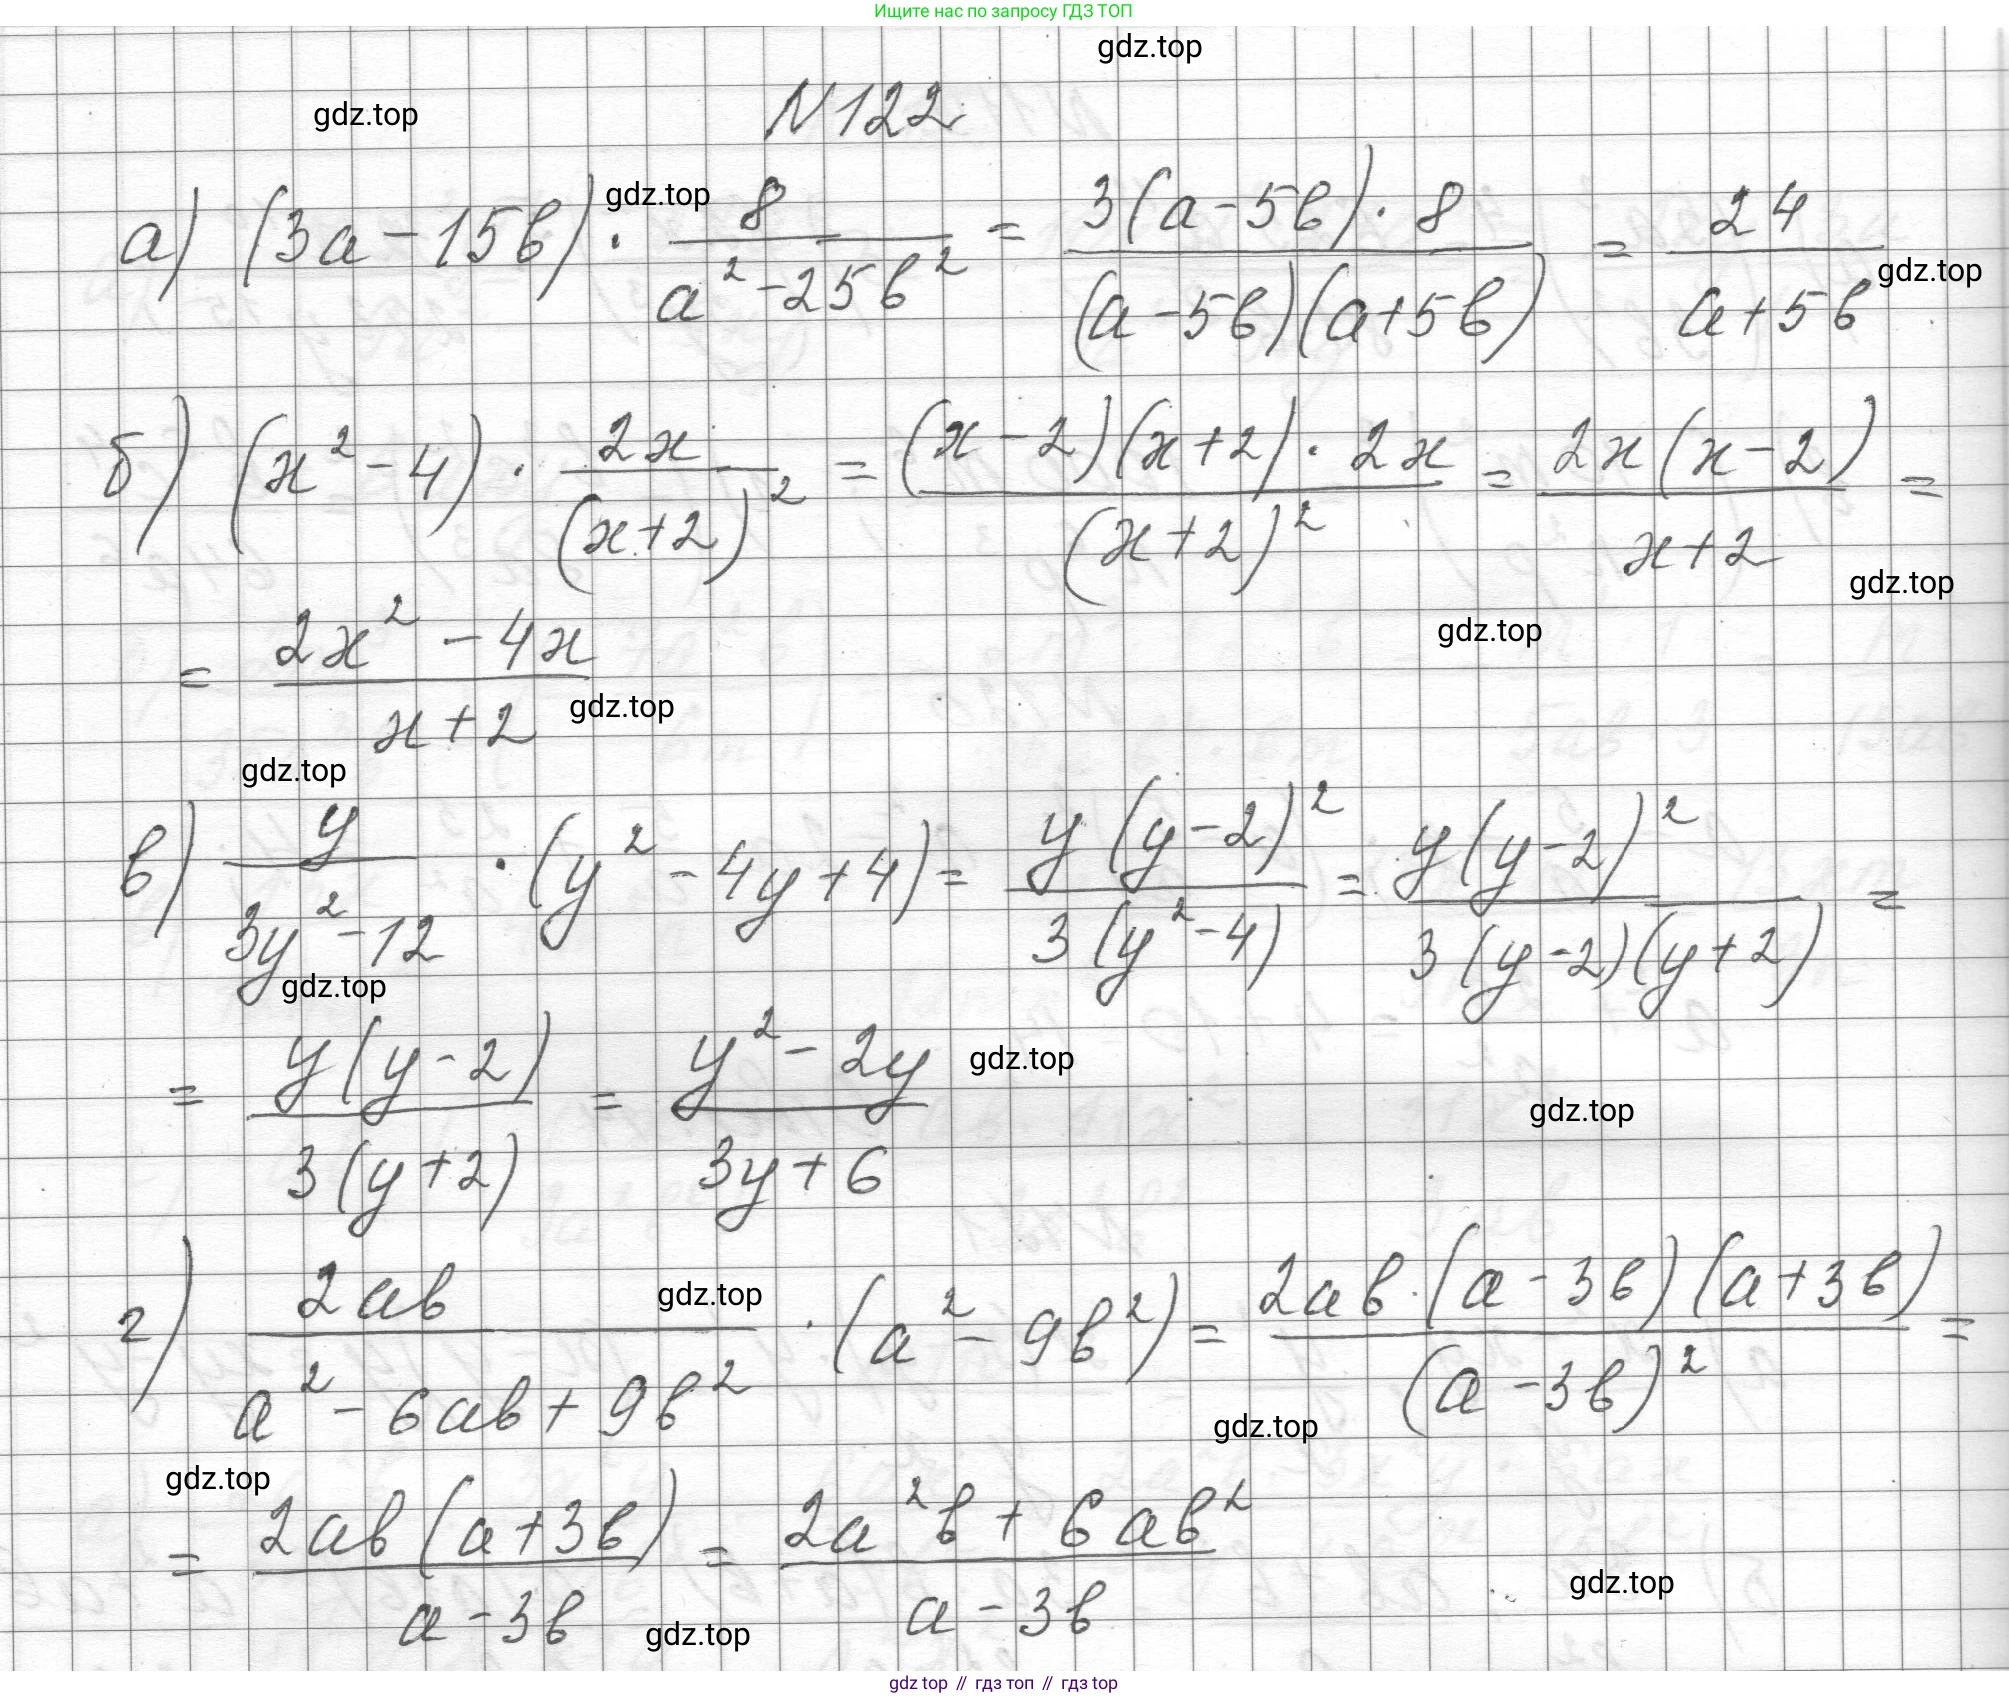 Ищите нас по запросу ГДЗ ТОП
gdz.top
gdz.top
N122
gdz.top
а) (3a - 15b) · 8/(a² - 25b²) = 3(a - 5b) · 8/((a - 5b)(a + 5b)) = 24/(a + 5b)
gdz.top
б) (x² - 4) · 2x/(x + 2)² = (x - 2)(x + 2) · 2x/(x + 2)² = 2x(x - 2)/(x + 2) =
gdz.top
gdz.top
= (2x² - 4x)/(x + 2)
gdz.top
gdz.top
в) y/(3y² - 12) · (y² - 4y + 4) = y(y - 2)²/(3(y² - 4)) = y(y - 2)²/(3(y - 2)(y + 2)) =
gdz.top
= y(y - 2)/(3(y + 2)) = (y² - 2y)/(3y + 6)
gdz.top
gdz.top
г) 2ab/(a² - 6ab + 9b²) · (a² - 9b²) = 2ab · (a - 3b)(a + 3b)/(a - 3b)² =
gdz.top
gdz.top
gdz.top
= 2ab(a + 3b)/(a - 3b) = (2a²b + 6ab²)/(a - 3b)
gdz.top
gdz.top
gdz top // гдз топ // гдз top